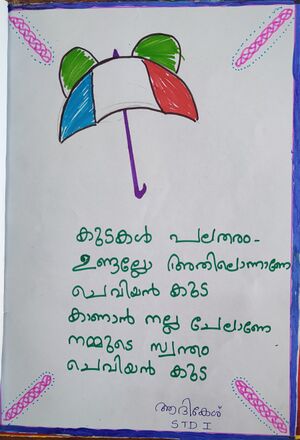 കുടകൾ പലതരം-
ഉണ്ടല്ലോ അതിലൊന്നാണേ
ചെവിയൻ കുട
കാണാൻ നല്ല ചേലാണേ
നമ്മുടെ സ്വന്തം
ചെവിയൻ കുട
ആദികേശ്
STD I